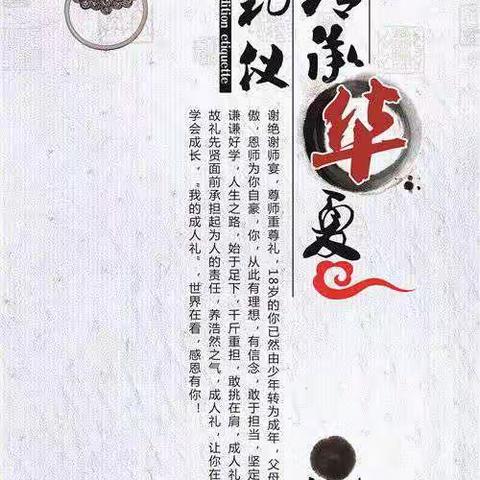 承华夏
礼仪
dition etiquette
谢绝谢师宴，尊师重尊礼，18岁的你已然由少年转为成年，父母
傲，恩师为你自豪，你，从此有理想，有信念，敢于担当，坚定
谦谦好学，人生之路，始于足下，千斤重担，敢挑在肩，成人礼
故礼先贤面前承担起为人的责任，养浩然之气，成人礼，让你在
学会成长，“我的成人礼”，世界在看，感恩有你！